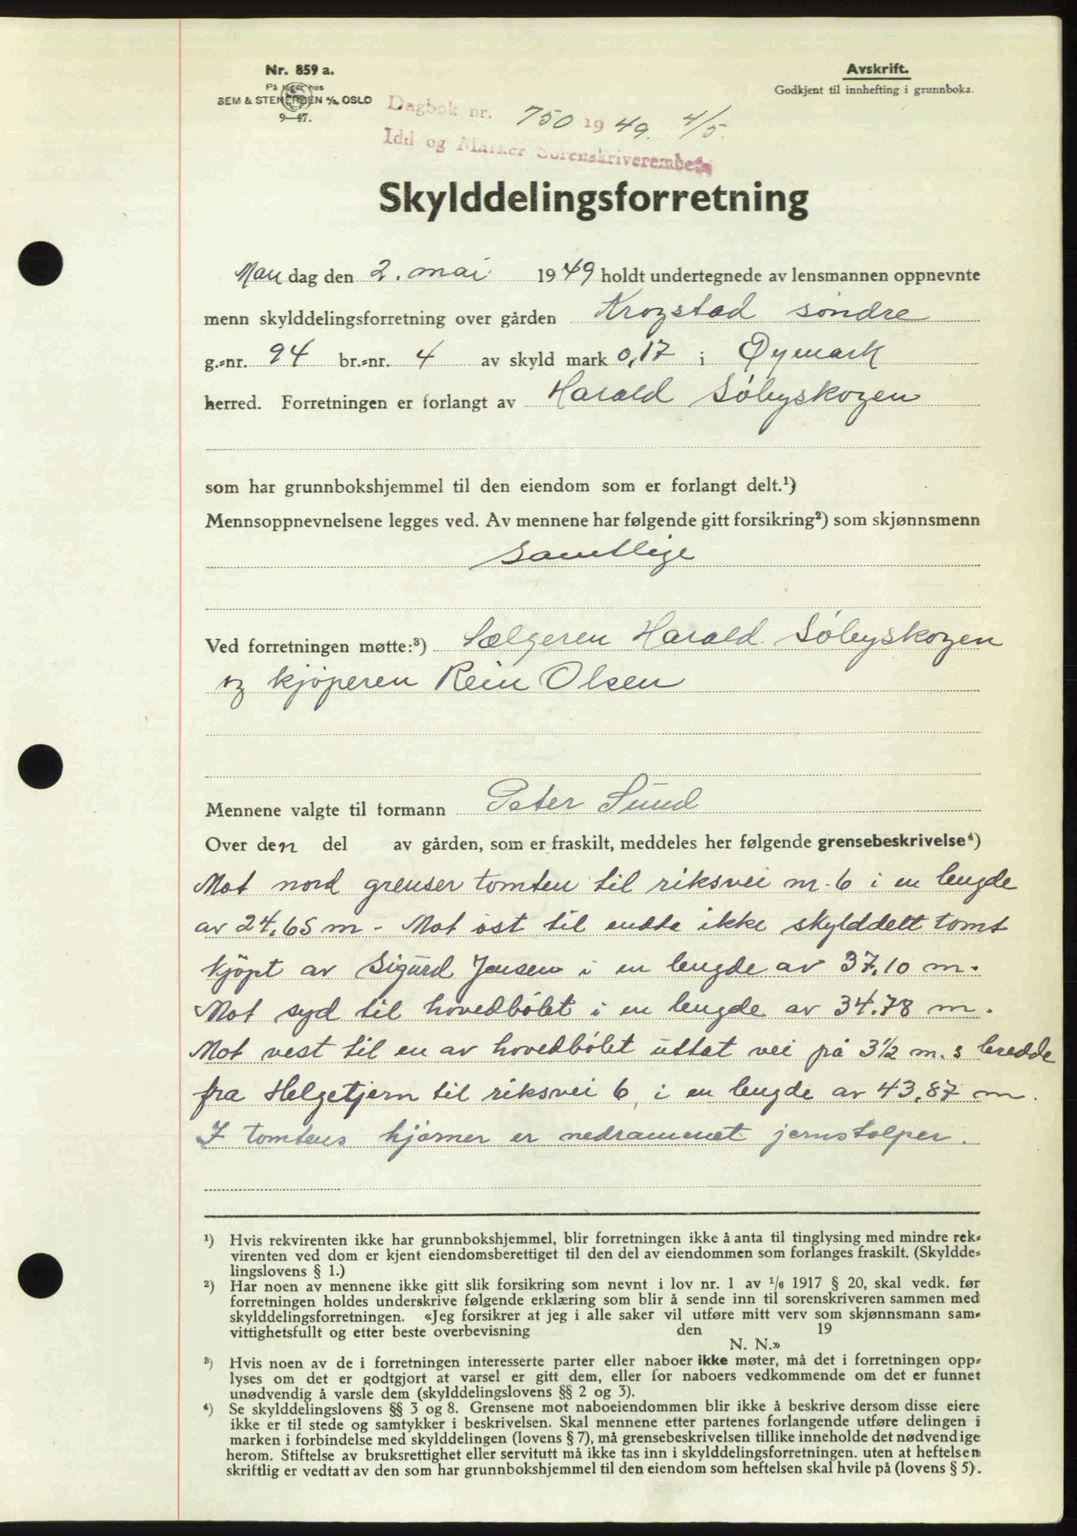 Nr. 859 a.
På lager hos
SEM & STENERSEN A/S, OSLO
9—47.
Avskrift.
Godkjent til innhefting i grunnboka.
Dagbok nr. 750 1949. 4/5.
Idd og Marker Sorenskriverembete
Skylddelingsforretning
Mandag den 2. mai 1949 holdt undertegnede av lensmannen oppnevnte
menn skylddelingsforretning over gården Krogstad søndre
g.-nr. 94 br.-nr. 4 av skyld mark 0,17 i Øymark
herred. Forretningen er forlangt av Harald Søbyskogen
som har grunnbokshjemmel til den eiendom som er forlangt delt.¹)
Mennsoppnevnelsene legges ved. Av mennene har følgende gitt forsikring²) som skjønnsmenn
Samtlige
Ved forretningen møtte:³) Sælgeren Harald Søbyskogen
og kjøperen Rein Olsen
Mennene valgte til formann Peter Sund
Over den del av gården, som er fraskilt, meddeles her følgende grensebeskrivelse⁴)
Mot nord grenser tomten til riksvei nr. 6 i en lengde
av 24,65 m - Mot øst til endta ikke skylddelt tomt
kjøpt av Sigurd Jensen i en lengde av 37,10 m.
Mot syd til hovedbølet i en lengde av 34.78 m.
Mot vest til en av hovedbølet uttat vei på 3½ m.s bredde
fra Helgetjern til riksvei 6, i en lengde av 43,87 m.
I tomtens hjørner er nedrammet jernstolper.
¹) Hvis rekvirenten ikke har grunnbokshjemmel, blir forretningen ikke å anta til tinglysing med mindre rek-
virenten ved dom er kjent eiendomsberettiget til den del av eiendommen som forlanges fraskilt. (Skyldde-
lingslovens § 1.)
²) Har noen av mennene ikke gitt slik forsikring som nevnt i lov nr. 1 av 1/6 1917 § 20, skal vedk. før
forretningen holdes underskrive følgende erklæring som blir å sende inn til sorenskriveren sammen med
skylddelingsforretningen. «Jeg forsikrer at jeg i alle saker vil utføre mitt verv som skjønnsmann sam-
vittighetsfullt og etter beste overbevisning den 19
N. N.»
³) Hvis noen av de i forretningen interesserte parter eller naboer ikke møter, må det i forretningen opp-
lyses om det er godtgjort at varsel er gitt dem, eller for naboers vedkommende om det er funnet
unødvendig å varsle dem (skylddelingslovens §§ 2 og 3).
⁴) Se skylddelingslovens §§ 3 og 8. Grensene mot naboeiendommen blir ikke å beskrive dersom disse eiere
ikke er til stede og samtykker i beskrivelsen. Skal mennene etter partenes forlangende utføre delingen i
marken i forbindelse med skylddelingen (lovens § 7), må grensebeskrivelsen tillike inneholde det nødvendige
herom. Stiftelse av bruksrettighet eller servitutt må ikke tas inn i skylddelingsforretningen, uten at heftelsen
skriftlig er vedtatt av den som har grunnbokshjemmel til den eiendom som heftelsen skal hvile på (lovens § 5).